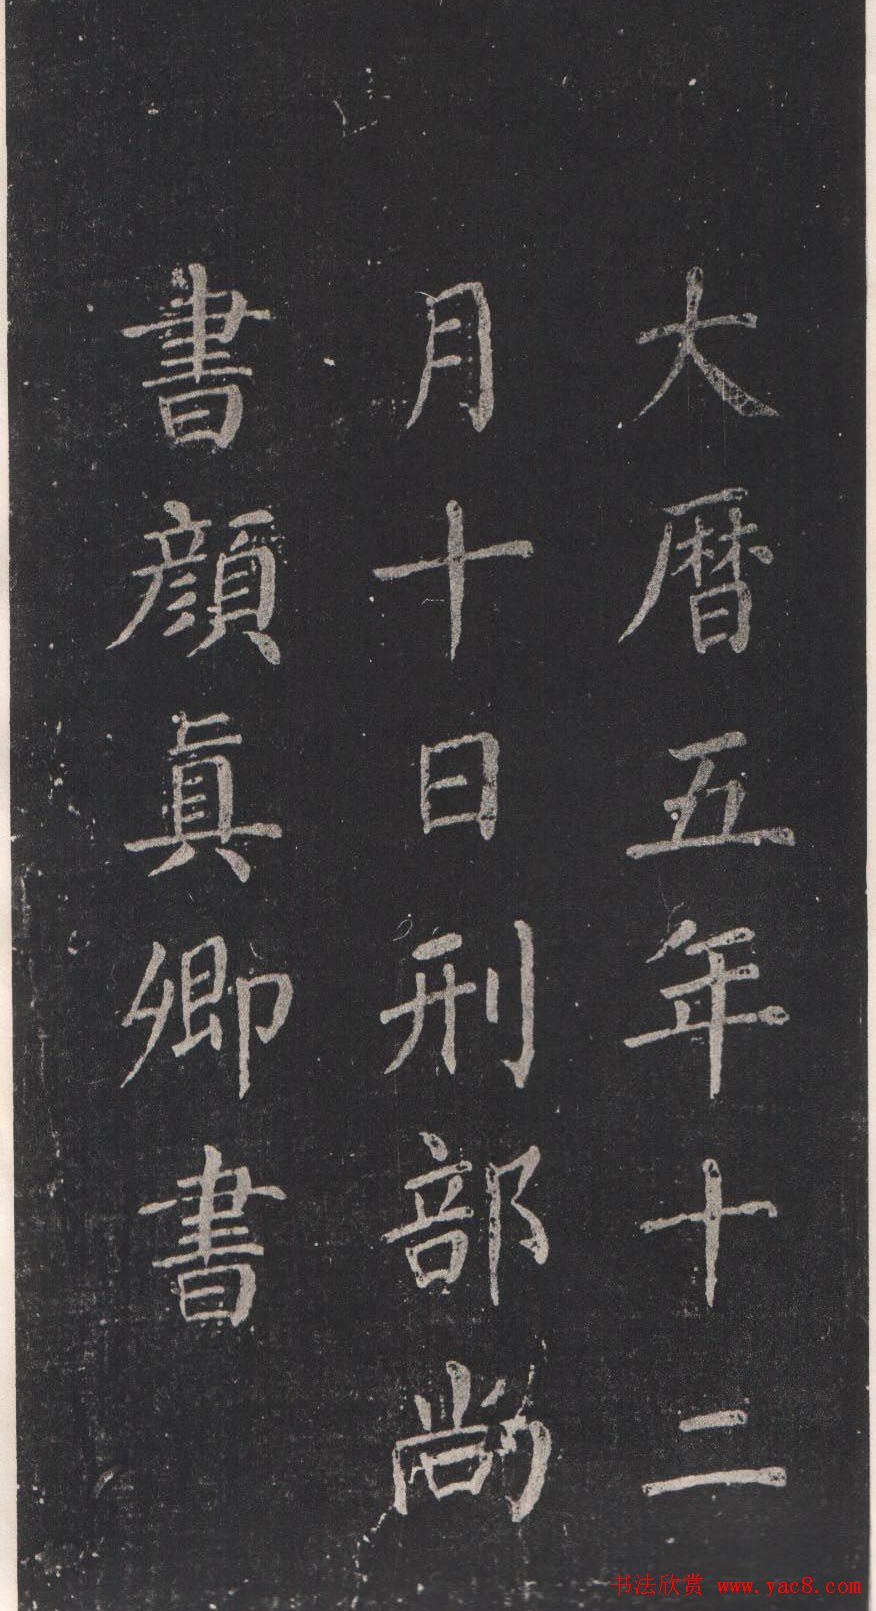 大曆五年十二
月十日刑部尚
書顏真卿書
书法欣赏 www.yac8.com